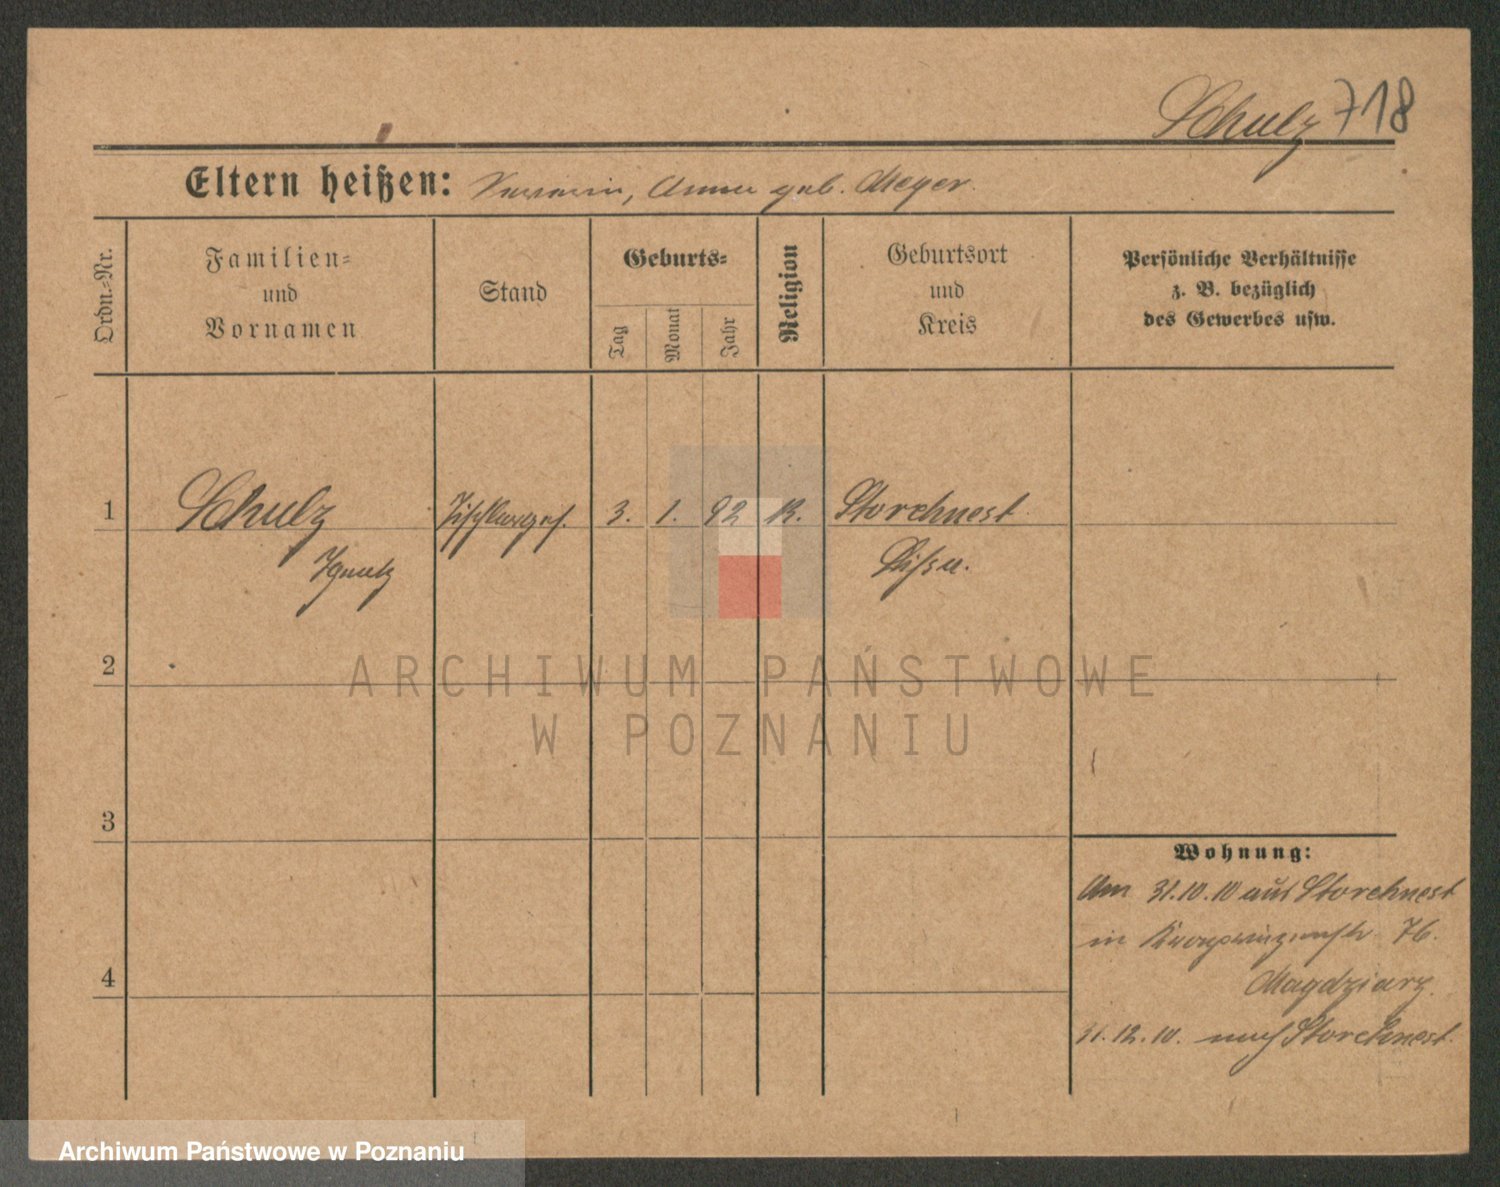 Schulz 718
Eltern heißen: Anna geb. Meyer.
Ordn.-Nr.
Familien-
und
Vornamen
Stand
Geburts-
Tag
Monat
Jahr
Religion
Geburtsort
und
Kreis
Persönliche Verhältnisse
z. B. bezüglich
des Gewerbes usw.
1 Schulz Tischlerges. 3. 1. 92 K. Storchnest
Ignatz Lissa.
2
3
4
Wohnung:
Am 31.10.10 aus Storchnest
in Kronprinzenstr. 76.
Magdziarz.
31.12.10. nach Storchnest.
ARCHIWUM PAŃSTWOWE
W POZNANIU
Archiwum Państwowe w Poznaniu